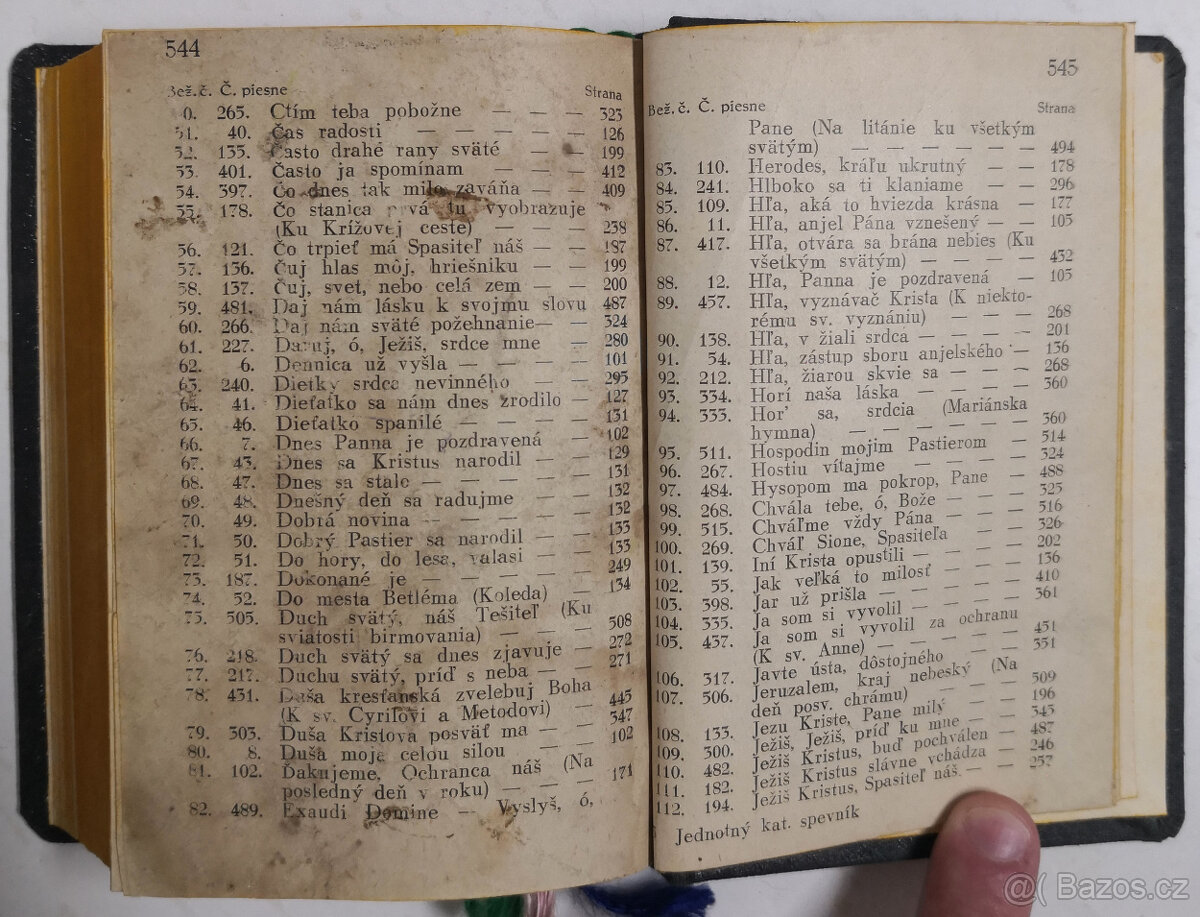 544
Bež.č. Č. piesne Strana
0. 265. Ctím teba pobožne — — — 323
51. 40. Čas radosti — — — — — 126
52. 135. Často drahé rany sväté — — 199
53. 401. Často ja spomínam — — — 412
54. 397. Čo dnes tak milo zaváňa — — 409
55. 178. Čo stanica prvá tu vyobrazuje
(Ku Krížovej ceste) — — — 238
56. 121. Čo trpieť má Spasiteľ náš — — 187
57. 136. Čuj hlas môj, hriešniku — — 199
58. 137. Čuj, svet, nebo celá zem — — 200
59. 481. Daj nám lásku k svojmu slovu 487
60. 266. Daj nám sväté požehnanie— — 324
61. 227. Daruj, ó, Ježiš, srdce mne — 280
62. 6. Dennica už vyšla — — — — 101
63. 240. Dietky srdca nevinného — — 295
64. 41. Dieťatko sa nám dnes zrodilo — 127
65. 46. Dieťatko spanilé — — — — 131
66. 7. Dnes Panna je pozdravená — — 102
67. 43. Dnes sa Kristus narodil — — 129
68. 47. Dnes sa stalo — — — — — 131
69. 48. Dnešný deň sa radujme — — — 132
70. 49. Dobrá novina — — — — — 132
71. 50. Dobrý Pastier sa narodil — — 133
72. 51. Do hory, do lesa, valasi — — 133
73. 187. Dokonané je — — — — — 249
74. 52. Do mesta Betléma (Koleda) — — 134
75. 505. Duch svätý, náš Tešiteľ (Ku
sviatosti birmovania) — — — 508
76. 218. Duch svätý sa dnes zjavuje — — 272
77. 217. Duchu svätý, príď s neba — — 271
78. 431. Duša kresťanská zvelebuj Boha
(K sv. Cyrilovi a Metodovi) — 445
79. 303. Duša Kristova posväť ma — — 347
80. 8. Duša moja celou silou — — 102
81. 102. Ďakujeme, Ochranca náš (Na
posledný deň v roku) — — — 171
82. 489. Exaudi Domine — Vyslyš, ó,
545
Bež. č. Č. piesne Strana
Pane (Na litánie ku všetkým
svätým) — — — — — — 494
83. 110. Herodes, kráľu ukrutný — — 178
84. 241. Hlboko sa ti klaniame — — 296
85. 109. Hľa, aká to hviezda krásna — 177
86. 11. Hľa, anjel Pána vznešený — — 105
87. 417. Hľa, otvára sa brána nebies (Ku
všetkým svätým) — — — — 432
88. 12. Hľa, Panna je pozdravená — 105
89. 457. Hľa, vyznávač Krista (K niekto-
rému sv. vyznániu) — — — 268
90. 138. Hľa, v žiali srdca — — — — 201
91. 54. Hľa, zástup sboru anjelského — 136
92. 212. Hľa, žiarou skvie sa — — — 268
93. 334. Horí naša láska — — — — 360
94. 333. Hor' sa, srdcia (Mariánska
hymna) — — — — — — 360
95. 511. Hospodin mojim Pastierom — 514
96. 267. Hostiu vítajme — — — — 324
97. 484. Hysopom ma pokrop, Pane — 488
98. 268. Chvála tebe, ó, Bože — — — 325
99. 515. Chváľme vždy Pána — — — 516
100. 269. Chváľ Sione, Spasiteľa — — 326
101. 139. Iní Krista opustili — — — — 202
102. 55. Jak veľká to milosť — — — 136
103. 398. Jar už prišla — — — — — 410
104. 335. Ja som si vyvolil — — — — 361
105. 437. Ja som si vyvolil za ochranu
(K sv. Anne) — — — — — 451
106. 317. Javte ústa, dôstojného — — — 351
107. 506. Jeruzalem, kraj nebeský (Na
deň posv. chrámu) — — — 509
108. 133. Jezu Kriste, Pane milý — — — 196
109. 300. Ježiš, Ježiš, príď ku mne — — 343
110. 482. Ježiš Kristus, buď pochválen — 487
111. 182. Ježiš Kristus slávne vchádza — 246
112. 194. Ježiš Kristus, Spasiteľ náš — — 257
Jednotný kat. spevník
@( Bazos.cz